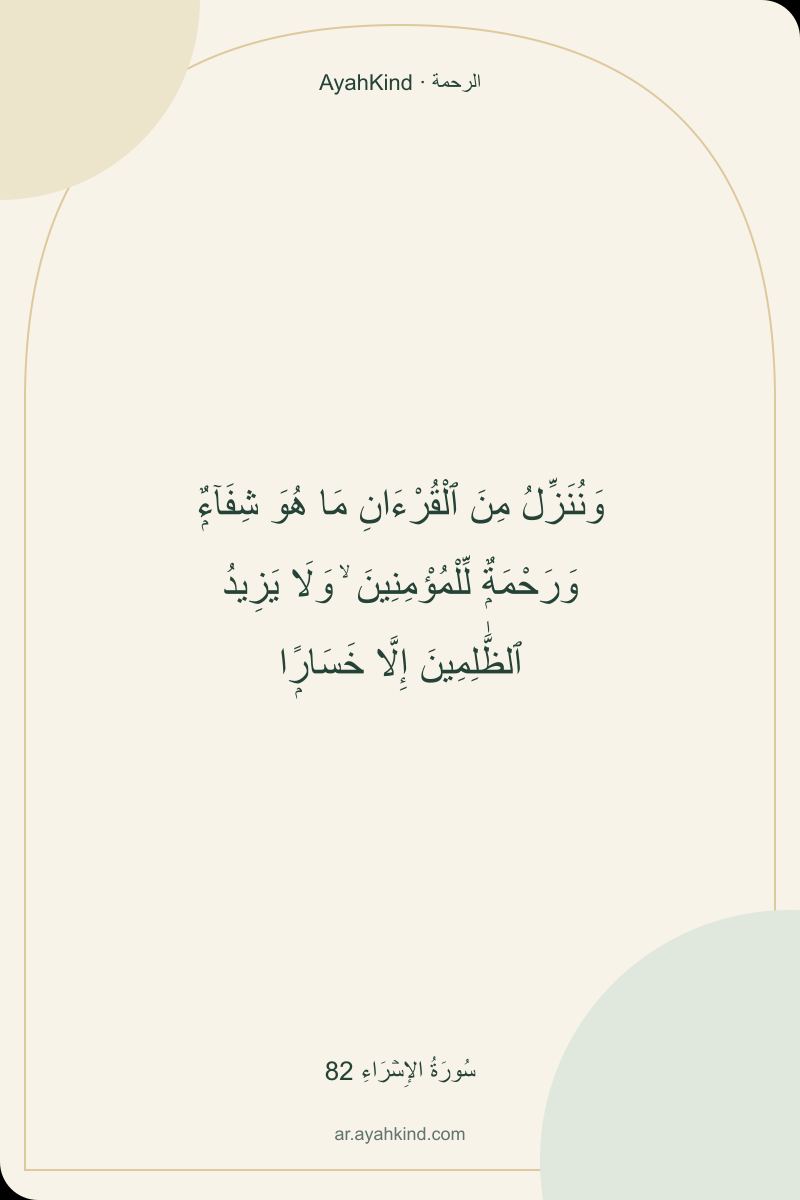 AyahKind · الرحمة
وَنُنَزِّلُ مِنَ ٱلْقُرْءَانِ مَا هُوَ شِفَآءٌۭ
وَرَحْمَةٌۭ لِّلْمُؤْمِنِينَ ۙ وَلَا يَزِيدُ
ٱلظَّٰلِمِينَ إِلَّا خَسَارًۭا
سُورَةُ الإِسۡرَاءِ 82
ar.ayahkind.com